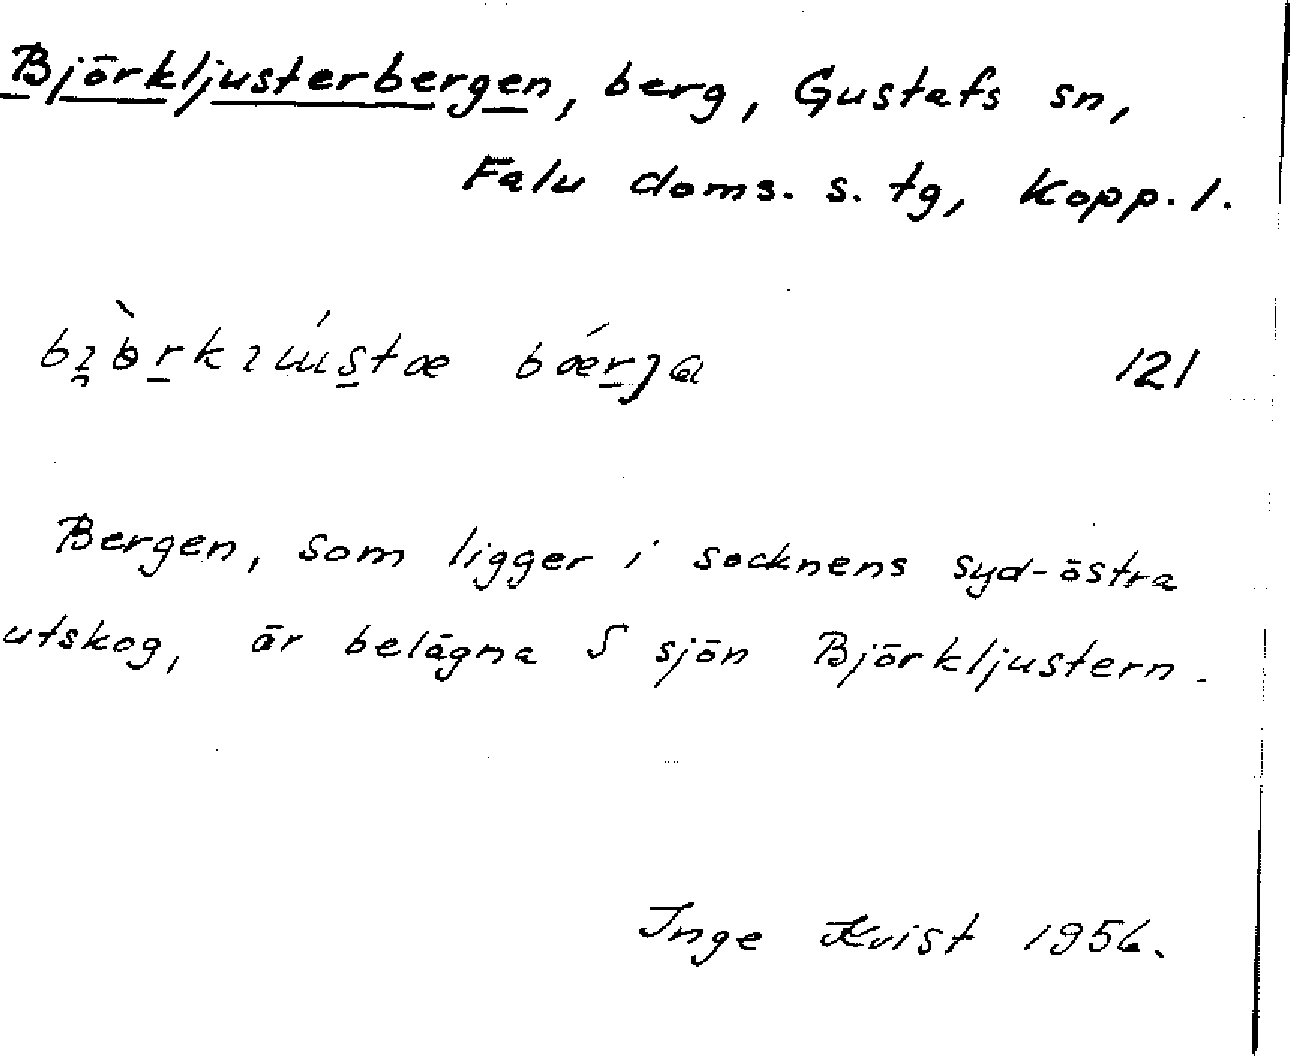 Björkljusterbergen, berg, Gustafs sn,
Falu doms. s. tg, Kopp. l.
121
Bergen, som ligger i socknens syd-östra
utskog, är belägna S sjön Björkljustern.
Inge Kvist 1956.